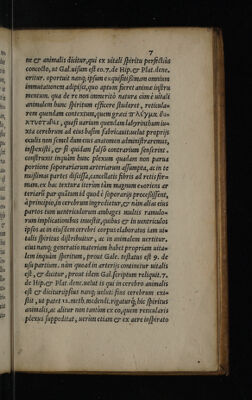 7
ne & animalis dicitur, qui ex vitali spiritu perfectiùs
convecto, ut Gal. visum est eo. 7. de Hip. & Plat. decre.
critur. oportuit nanq; ipsum exquisitissimam omnium
immutationem adipisci, quo aptum fieret animæ instru
mentum. qua de re non immeritò natura cùm è vitali
animalem hunc spiritum efficere studeret, reticula-
rem quendam contextum, quem græci
quasi aurium quendam labyrinthum iux
ta cerebrum ad eius basim fabricavit: veluti proprijs
oculis non semel dum eius anatomen administraremus,
inspexisti, & si quidam falsò contrarium senserit.
construxit inquam hunc plexum quadam non parua
portione soporariarum arteriarum assumpta, ac in te
nuissimas partes dissecta, cancellatis fibris ad retis for-
mam. ex hac textura iterùm tàm magnum exoriens ar
teriarū par quàm id quod è soporarijs processissent,
à principio, in cerebrum ingreditur, & tùm alias eius
partes tum ventriculorum ambages multis ramulo-
rum implicationibus inuestit, quibus & in ventriculos
ipsos ac in eiusdem cerebri corpus elaboratum iam ui
talis spiritus distribuitur, ac in animalem vertitur.
eius nanq; generatio materiam habet propriam uita-
lem inquam spiritum, prout Gale. testatus est 9. de
usu partium. nàm quod in arterijs continetur vitalis
est, & dicitur, prout idem Gal. scriptum reliquit. 7.
de Hip. & Plat. decre. uelut is qui in cerebro animalis
est & dicitur: ipsius nanq; ueluti sinc cerebrum exi-
stit, ut patet 12. meth. medendi. rigatur q; hic spiritus
animalis, ac alitur non tantùm ex eo, quem reticularis
plexus suppeditat, uerùm etiam & ex aere inspirato